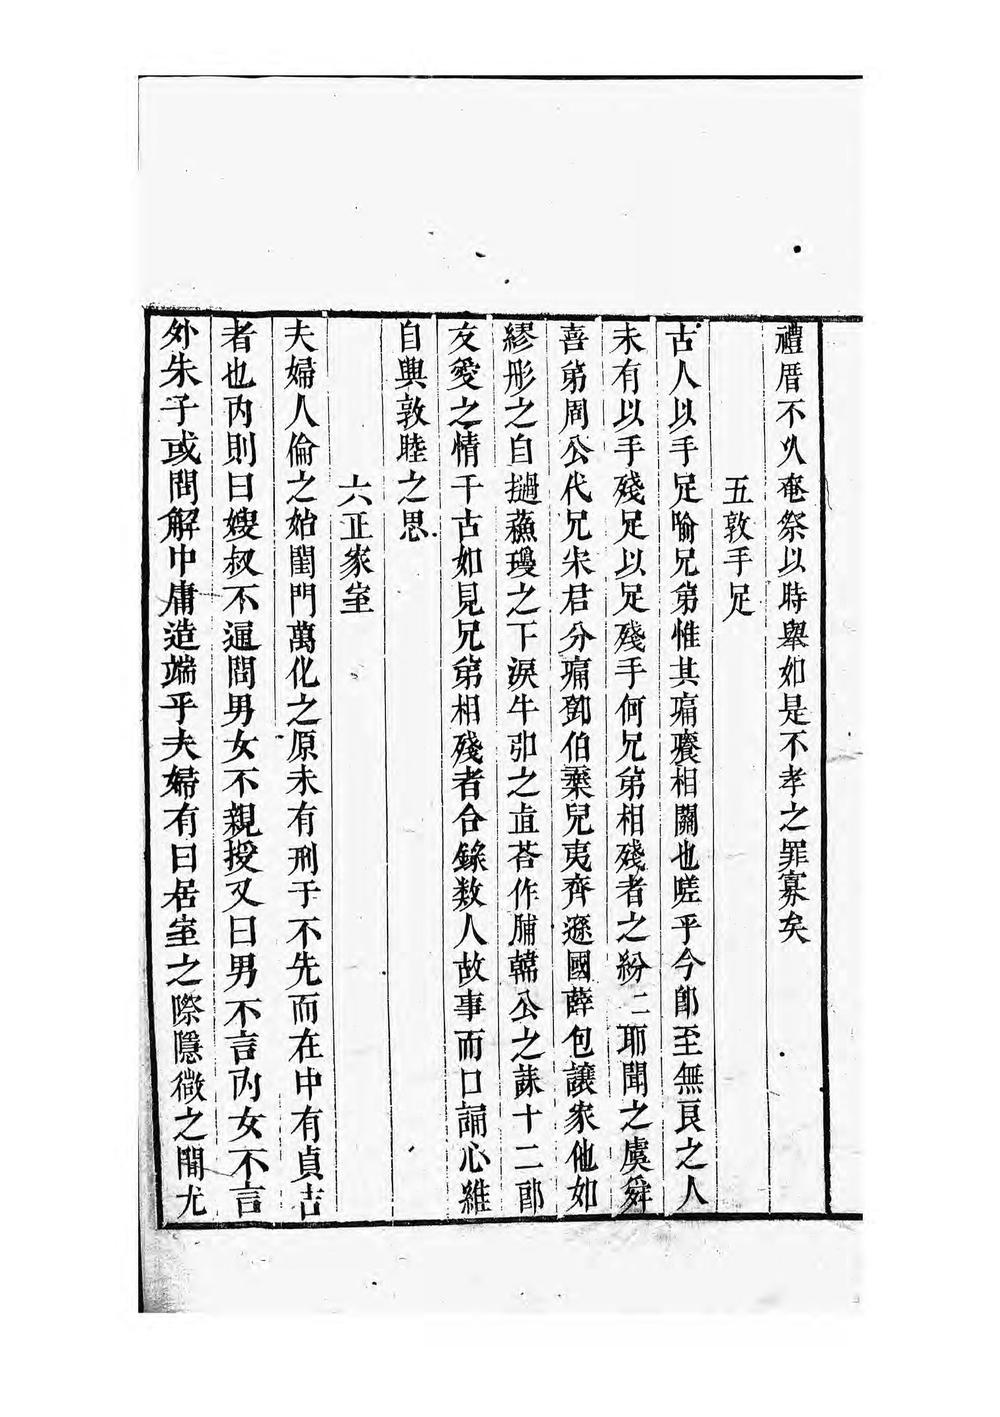 禮厝不久奄祭以時舉如是不孝之罪寡矣
五敦手足
古人以手足喻兄弟惟其痛癢相關也嗟乎今卽至無良之人
未有以手殘足以足殘手何兄弟相殘者之紛二耶聞之虞舜
喜弟周公代兄朱君分痛鄧伯棄兒夷齊遜國薛包讓家他如
繆彤之自撾蘓瓊之下淚牛弘之直荅作脯韓公之誄十二郎
友愛之情千古如見兄弟相殘者合錄数人故事而口誦心維
自興敦睦之思
六正家室
夫婦人倫之始閨門萬化之原未有刑于不先而在中有貞吉
者也内則曰嫂叔不通問男女不親授又曰男不言内女不言
外朱子或問解中庸造端乎夫婦有曰居室之際隱微之間尤